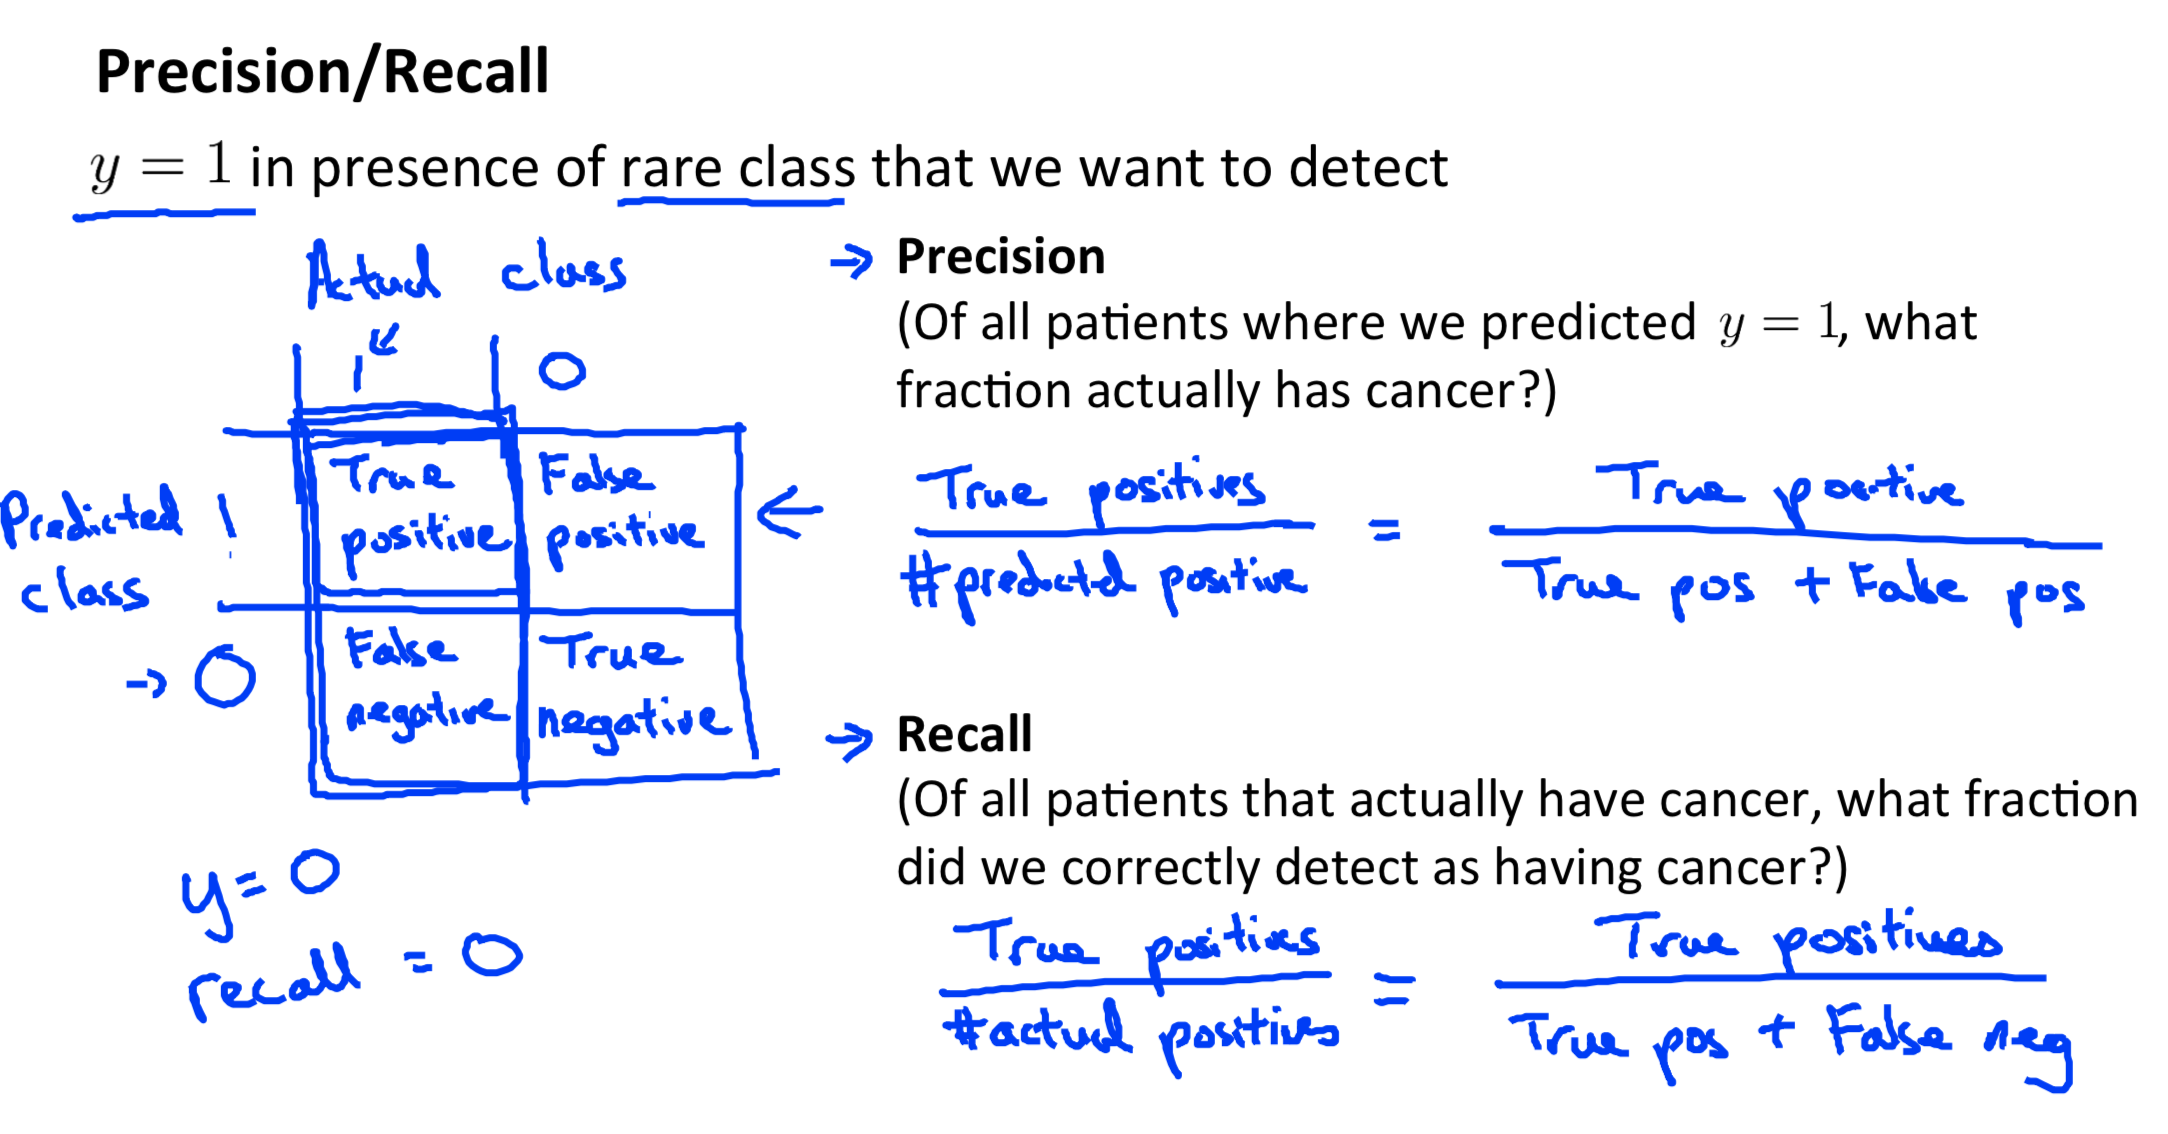 Precision/Recall
y = 1 in presence of rare class that we want to detect
Actual class
1 0
Predicted class
1
0
True positive
False positive
False negative
True negative
y = 0
recall = 0
→ Precision
(Of all patients where we predicted y = 1, what
fraction actually has cancer?)
True positives / #predicted positive = True positive / True pos + False pos
→ Recall
(Of all patients that actually have cancer, what fraction
did we correctly detect as having cancer?)
True positives / #actual positives = True positives / True pos + False neg